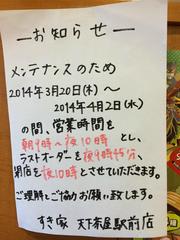 ―お知らせ―
メンテナンスのため
2014年3月20日(木)～
2014年4月2日(水)
の間、営業時間を
朝9時～夜10時とし、
ラストオーダーを夜9時45分、
閉店を夜10時とさせていただきます。
ご理解とご協力お願い致します。
すき家 天下茶屋駅前店